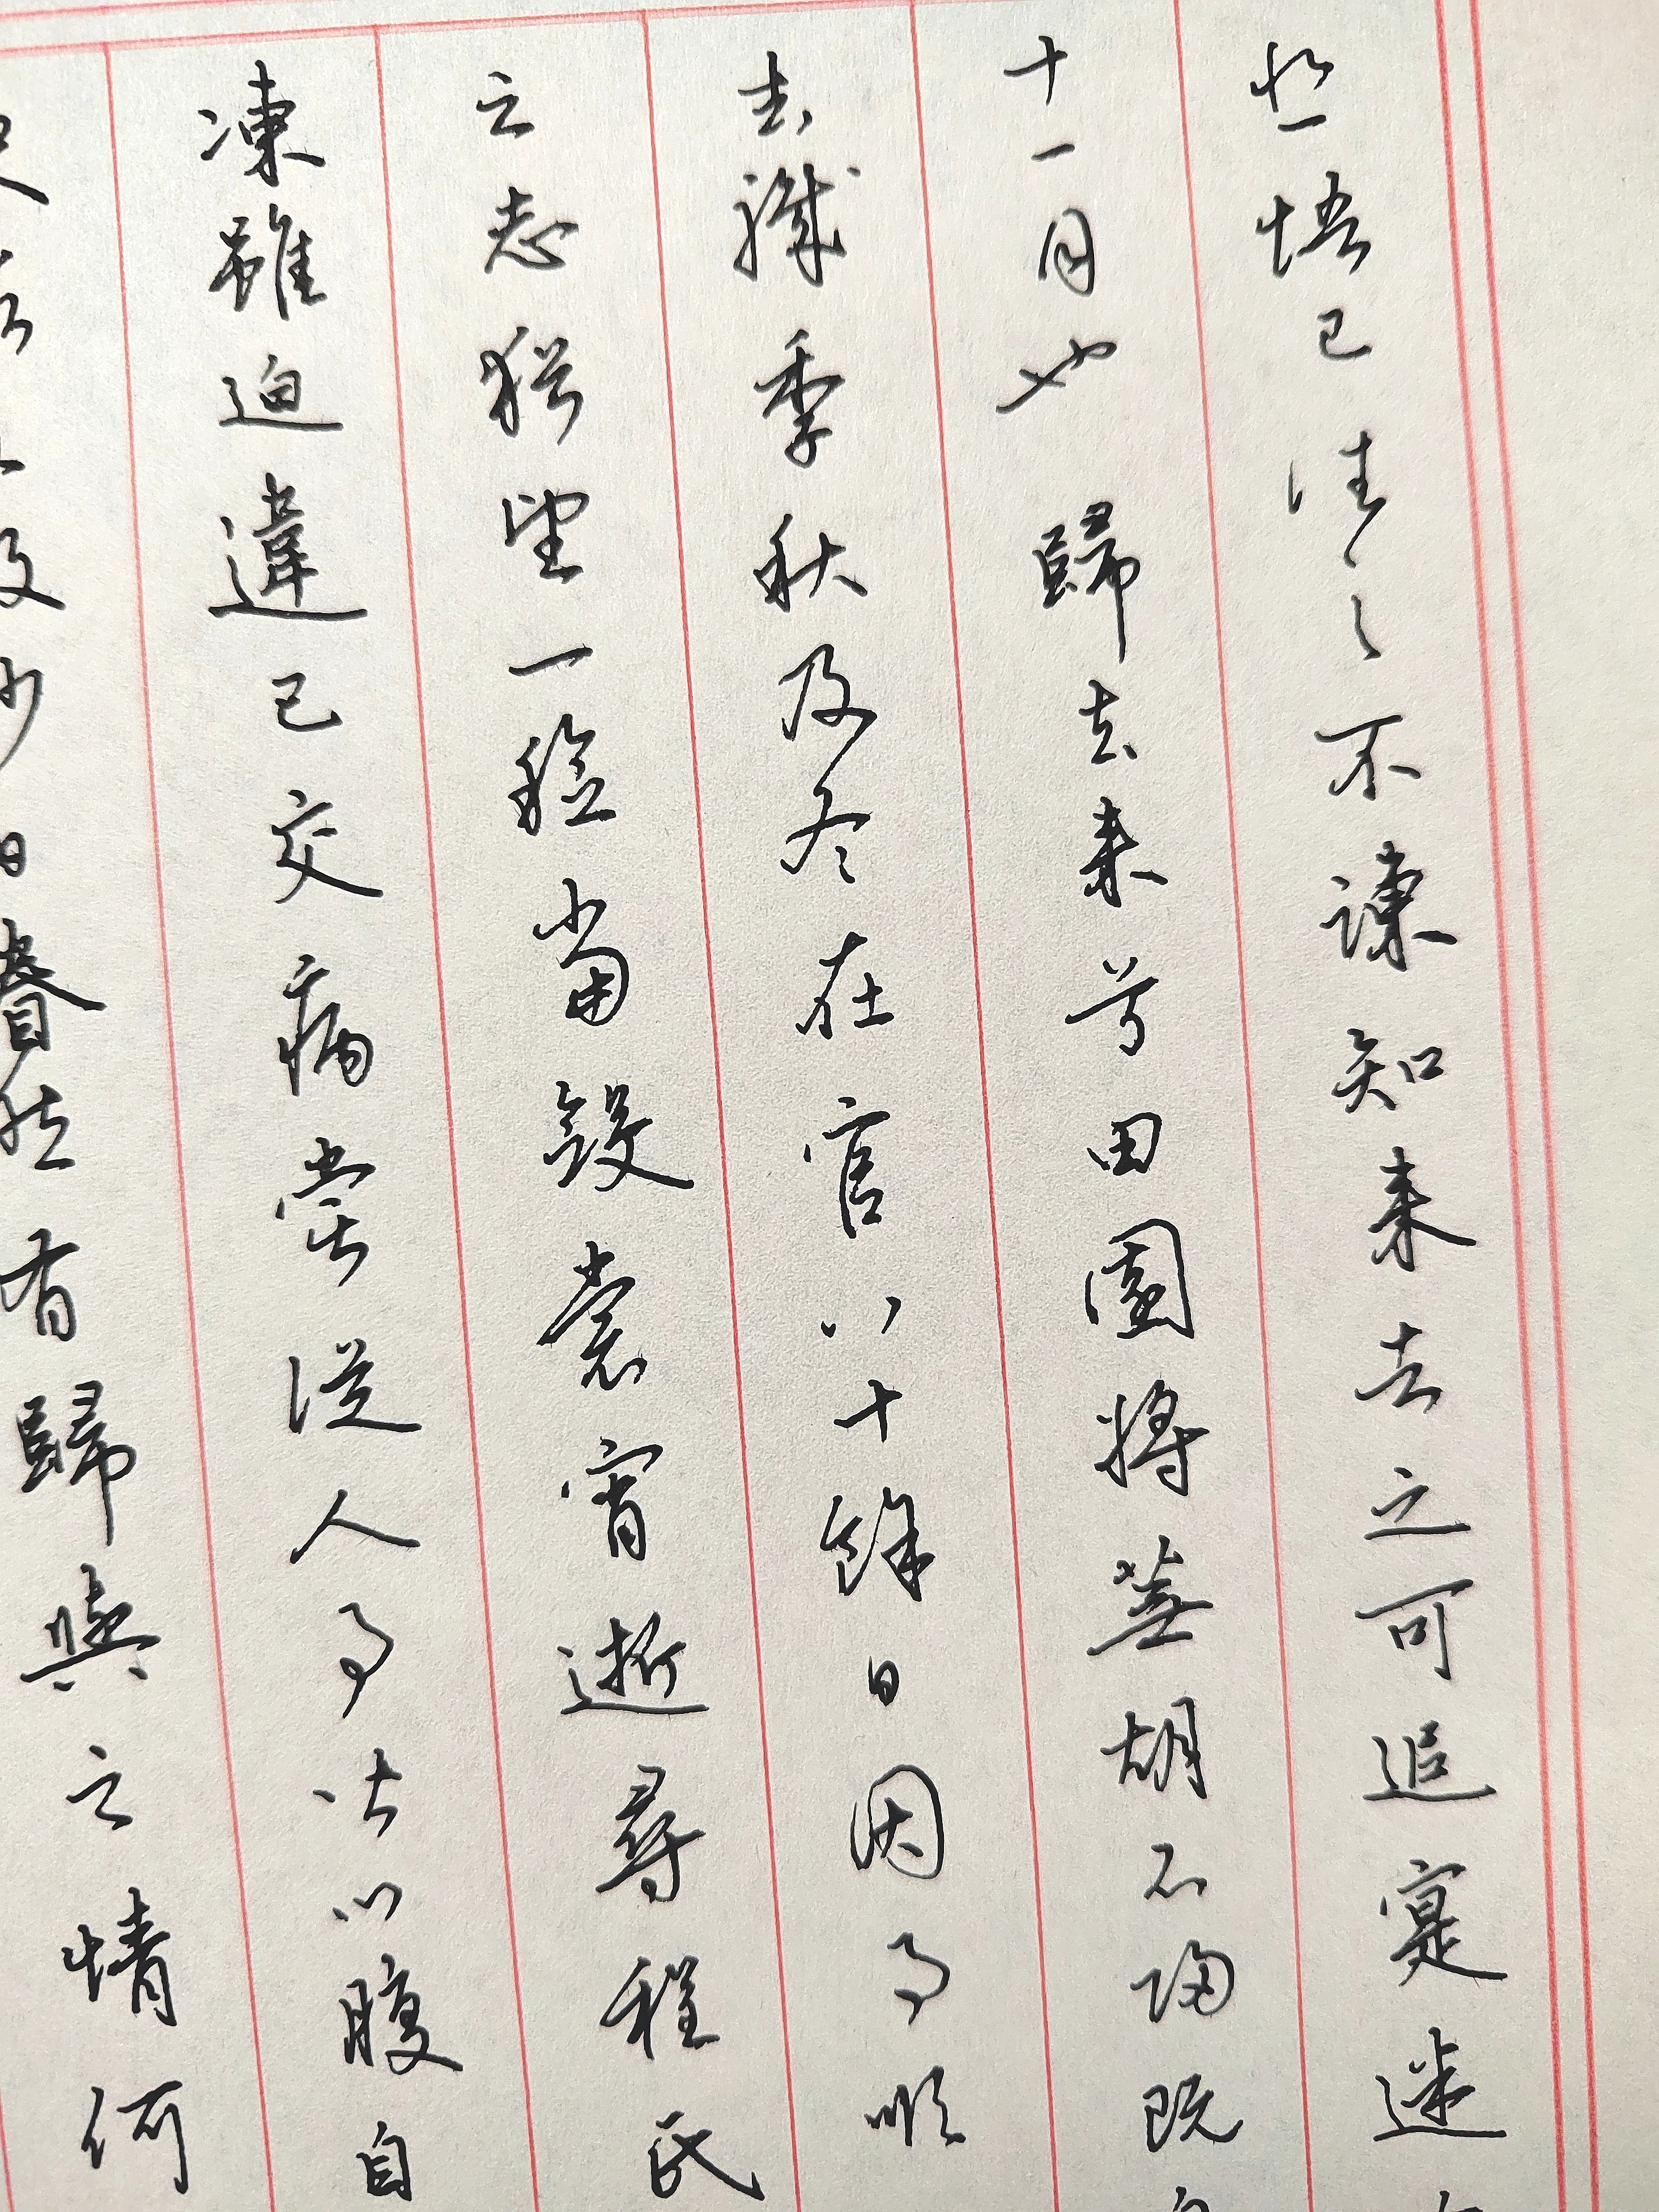 悲悟已往之不諫知来者之可追寔迷
十一月也 歸去来兮田園将蕪胡不歸既
去職季秋及冬在官八十餘日因事順
之志猶望一稔當斂裳宵逝尋程氏
凍雖迫違己交病嘗從人事皆口腹自
及少日眷然有歸與之情何